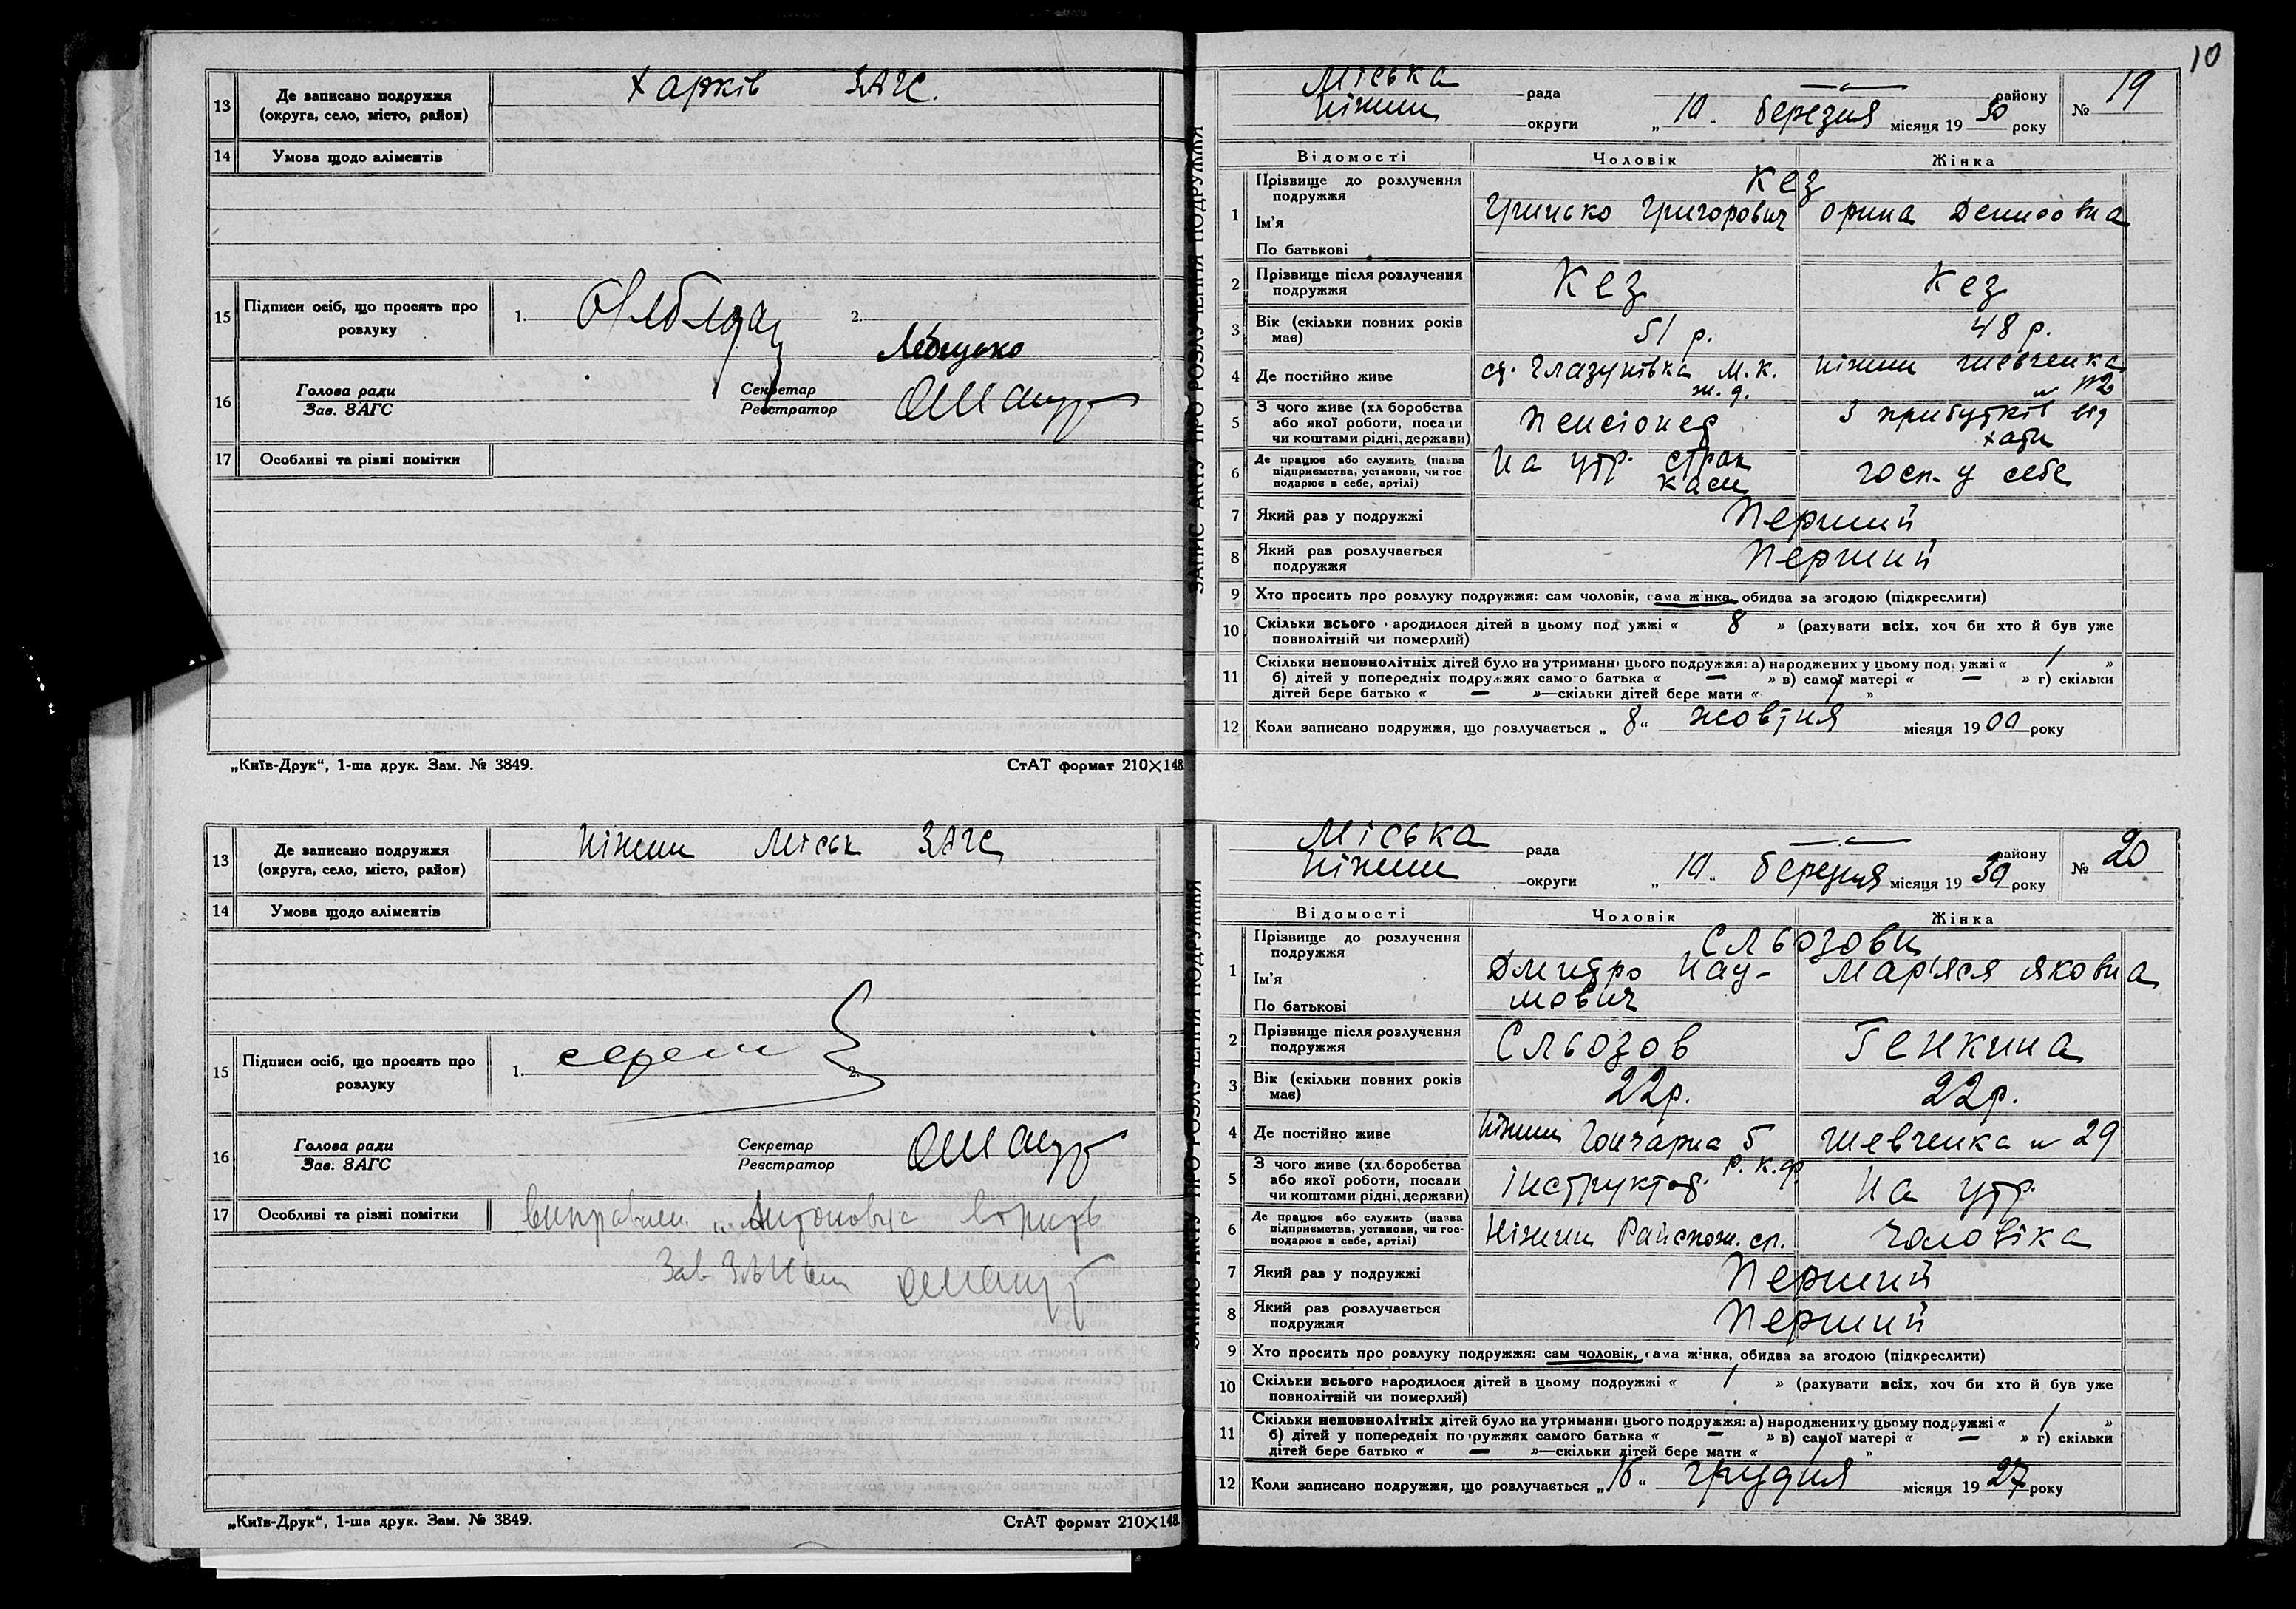 13 Де записано подружжя (округа, село, місто, район) Харків ЗАГС.
14 Умова щодо аліментів
15 Підписи осіб, що просять про розлуку 1. 2.
16 Голова ради Зав. ЗАГС Секретар Реєстратор
17 Особливі та різні помітки
„Київ-Друк“, 1-ша друк. Зам. № 3849. СтАТ формат 210×148
13 Де записано подружжя (округа, село, місто, район) Ніжин Міськ ЗАГС
14 Умова щодо аліментів
15 Підписи осіб, що просять про розлуку 1. 2.
16 Голова ради Зав. ЗАГС Секретар Реєстратор
17 Особливі та різні помітки
„Київ-Друк“, 1-ша друк. Зам. № 3849. СтАТ формат 210×148
10
ЗАПИС АКТУ ПРО РОЗЛУЧЕННЯ ПОДРУЖЖЯ
Міська рада — району № 19
Ніжин округи „10“ березня місяця 1930 року
Відомості Чоловік Жінка
1 Прізвище до розлучення подружжя Кез
Ім'я Грицько Григорович Орина Демидовна
По батькові
2 Прізвище після розлучення подружжя Кез Кез
3 Вік (скільки повних років має) 51 р. 48 р.
4 Де постійно живе ст. Глазунівка М. К. ж. д. Ніжин Шевченка
5 З чого живе (хліборобства або якої роботи, посади чи коштами рідні, держави) Пенсіонер З прибутків від хати
6 Де працює або служить (назва підприємства, установи, чи господарює в себе, артілі) На утр. страх каси госп. у себе
7 Який раз у подружжі Перший
8 Який раз розлучається подружжя Перший
9 Хто просить про розлуку подружжя: сам чоловік, сама жінка, обидва за згодою (підкреслити)
10 Скільки всього народилося дітей в цьому подружжі « 8 » (рахувати всіх, хоч би хто й був уже
повнолітній чи померлий)
11 Скільки неповнолітніх дітей було на утриманні цього подружжя: а) народжених у цьому подружжі « 1 »
б) дітей у попередніх подружжях самого батька « — » в) самої матері « — » г) скільки
дітей бере батько « — »—скільки дітей бере мати « 1 »
12 Коли записано подружжя, що розлучається „8“ жовтня місяця 1900 року
ЗАПИС АКТУ ПРО РОЗЛУЧЕННЯ ПОДРУЖЖЯ
Міська рада — району № 20
Ніжин округи „10“ березня місяця 1930 року
Відомості Чоловік Жінка
1 Прізвище до розлучення подружжя Сльозови
Ім'я Дмитро Нау- Мар'яся Яковна
По батькові мович
2 Прізвище після розлучення подружжя Сльозов Генкина
3 Вік (скільки повних років має) 22р. 22р.
4 Де постійно живе Ніжин Гончарна 5 Шевченка № 29
5 З чого живе (хліборобства або якої роботи, посади чи коштами рідні, держави) інструктор. На утр.
6 Де працює або служить (назва підприємства, установи, чи господарює в себе, артілі) Ніжин Райспож. сп. чоловіка
7 Який раз у подружжі Перший
8 Який раз розлучається подружжя Перший
9 Хто просить про розлуку подружжя: сам чоловік, сама жінка, обидва за згодою (підкреслити)
10 Скільки всього народилося дітей в цьому подружжі « 1 » (рахувати всіх, хоч би хто й був уже
повнолітній чи померлий)
11 Скільки неповнолітніх дітей було на утриманні цього подружжя: а) народжених у цьому подружжі « 1 »
б) дітей у попередніх подружжях самого батька « — » в) самої матері « — » г) скільки
дітей бере батько « — »—скільки дітей бере мати « 1 »
12 Коли записано подружжя, що розлучається „16“ грудня місяця 1927 року